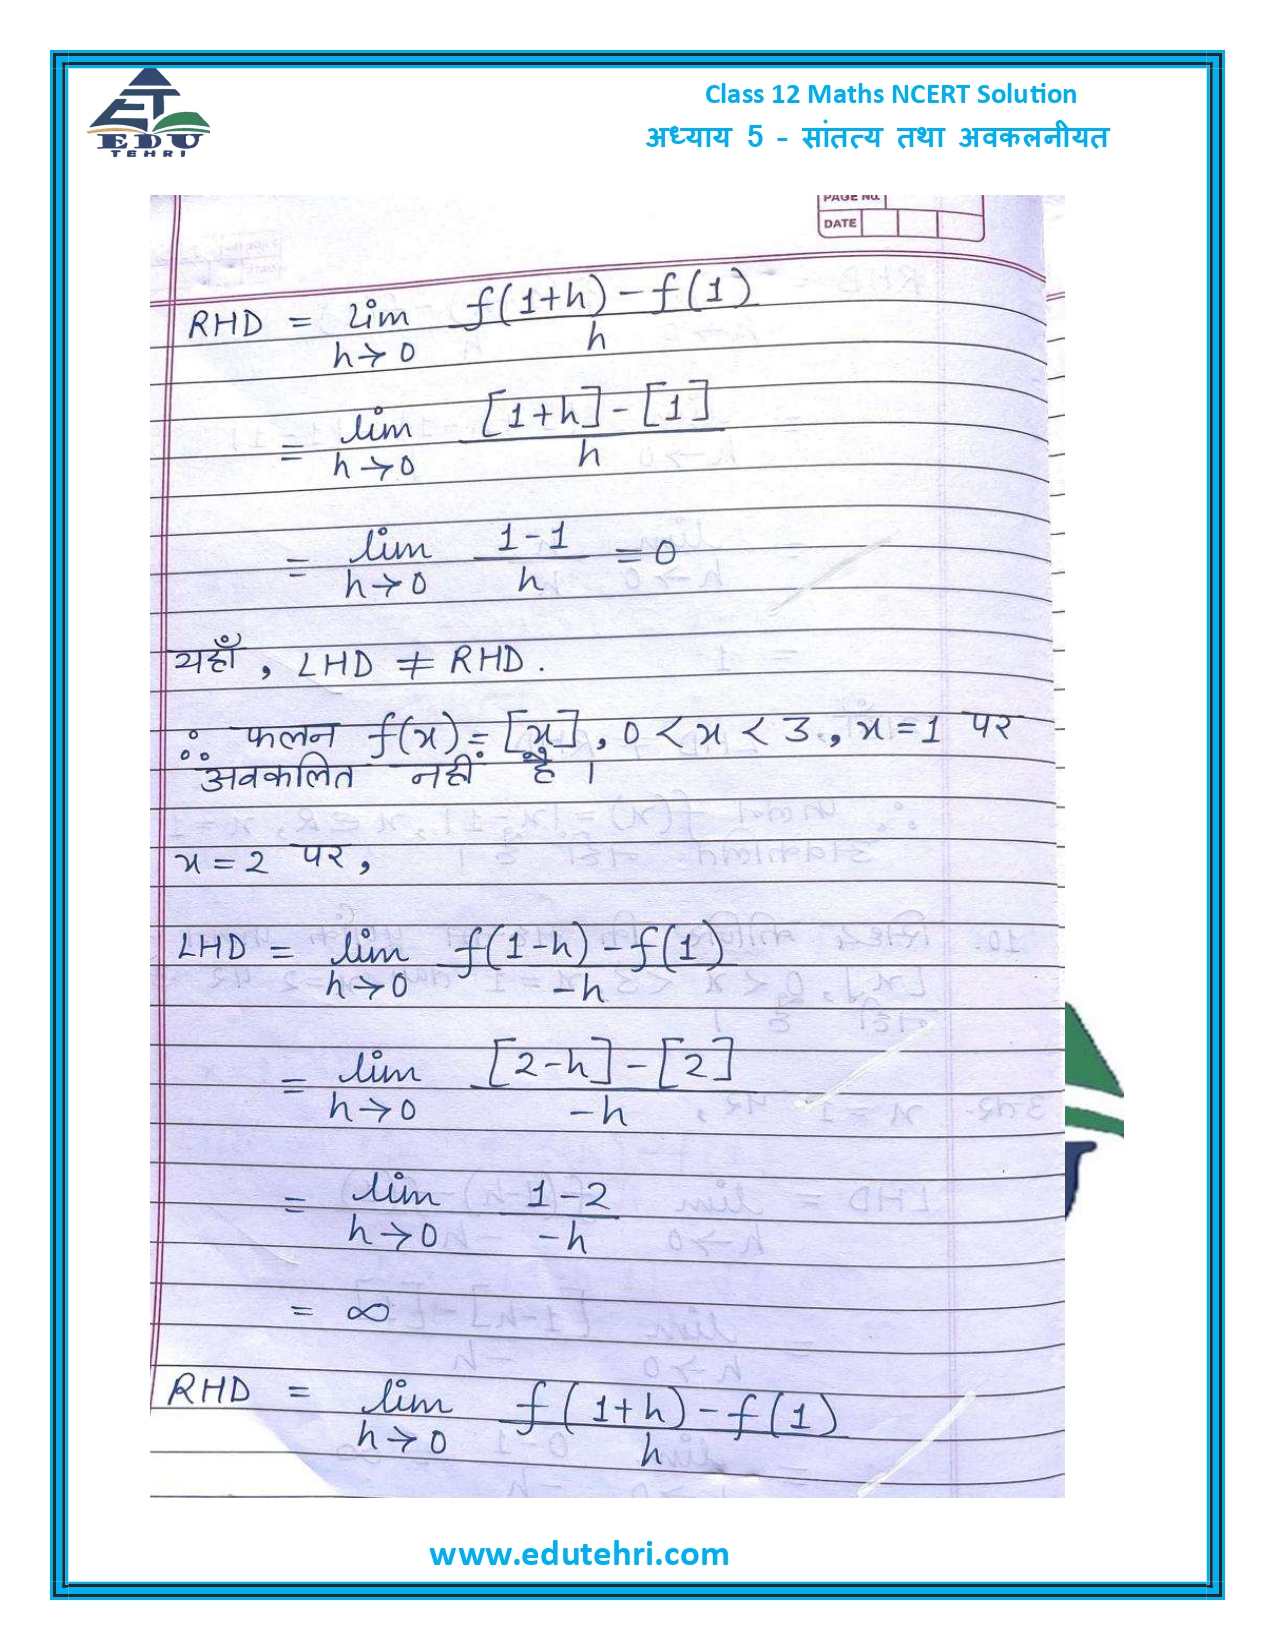 EDU
TEHRI
Class 12 Maths NCERT Solution
अध्याय 5 - सांतत्य तथा अवकलनीयत
PAGE No.
DATE
RHD = lim f(1+h) - f(1)
h→0 h
= lim [1+h] - [1]
h→0 h
= lim 1-1 = 0
h→0 h
यहाँ, LHD ≠ RHD.
∴ फलन f(x) = [x], 0 < x < 3, x=1 पर
अवकलित नहीं है।
x = 2 पर,
LHD = lim f(1-h) - f(1)
h→0 -h
= lim [2-h] - [2]
h→0 -h
= lim 1-2
h→0 -h
= ∞
RHD = lim f(1+h) - f(1)
h→0 h
www.edutehri.com